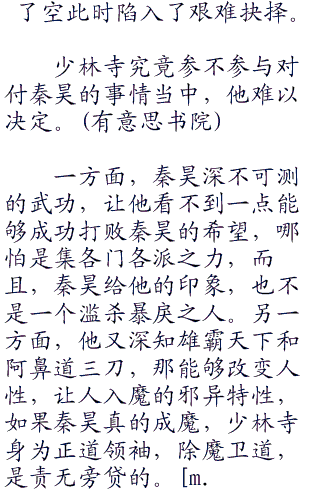 了空此时陷入了艰难抉择。
少林寺究竟参不参与对
付秦昊的事情当中，他难以
决定。(有意思书院)
一方面，秦昊深不可测
的武功，让他看不到一点能
够成功打败秦昊的希望，哪
怕是集各门各派之力，而
且，秦昊给他的印象，也不
是一个滥杀暴戾之人。另一
方面，他又深知雄霸天下和
阿鼻道三刀，那能够改变人
性，让人入魔的邪异特性，
如果秦昊真的成魔，少林寺
身为正道领袖，除魔卫道，
是责无旁贷的。[m.